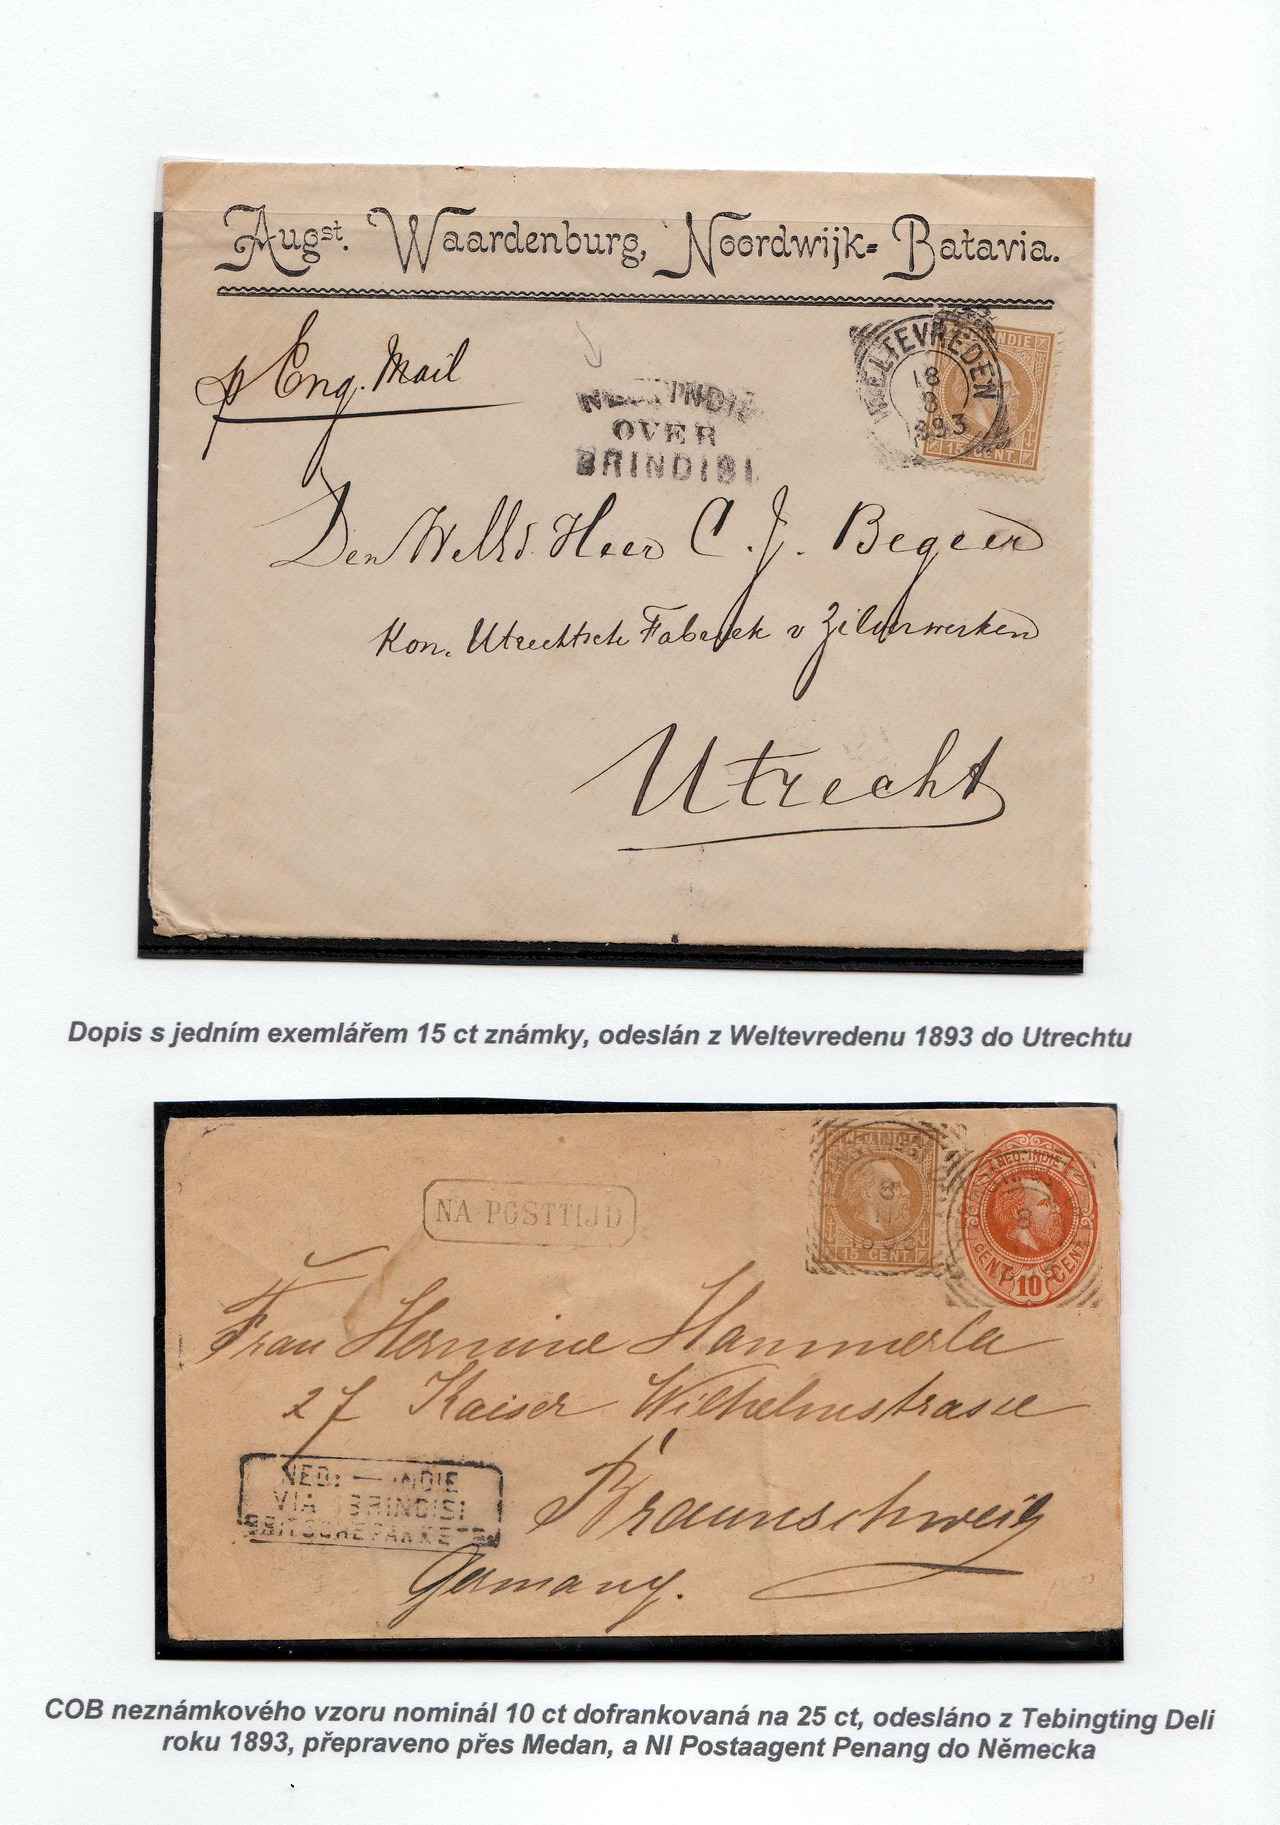 Augst. Waardenburg, Noordwijk=Batavia.
p Eng. Mail
NED. INDIE
OVER
BRINDISI
WELTEVREDEN
18
8
893
INDIE
15 CENT.
Heer C. J. Begeer
Kon. Utrechtsche Fabriek v Zilverwerken
Utrecht
Dopis s jedním exemlářem 15 ct známky, odeslán z Weltevredenu 1893 do Utrechtu
NA POSTTIJD
NED. INDIE
8
15 CENT.
NED. INDIE
8
CENT 10 CENT
Frau Hermine Hammerla
27 Kaiser Wilhelmstrasse
NED: — INDIE
VIA BRINDISI
BRITSCHE PAKKET
Braunschweig
Germany.
COB neznámkového vzoru nominál 10 ct dofrankovaná na 25 ct, odesláno z Tebingting Deli
roku 1893, přepraveno přes Medan, a NI Postaagent Penang do Německa